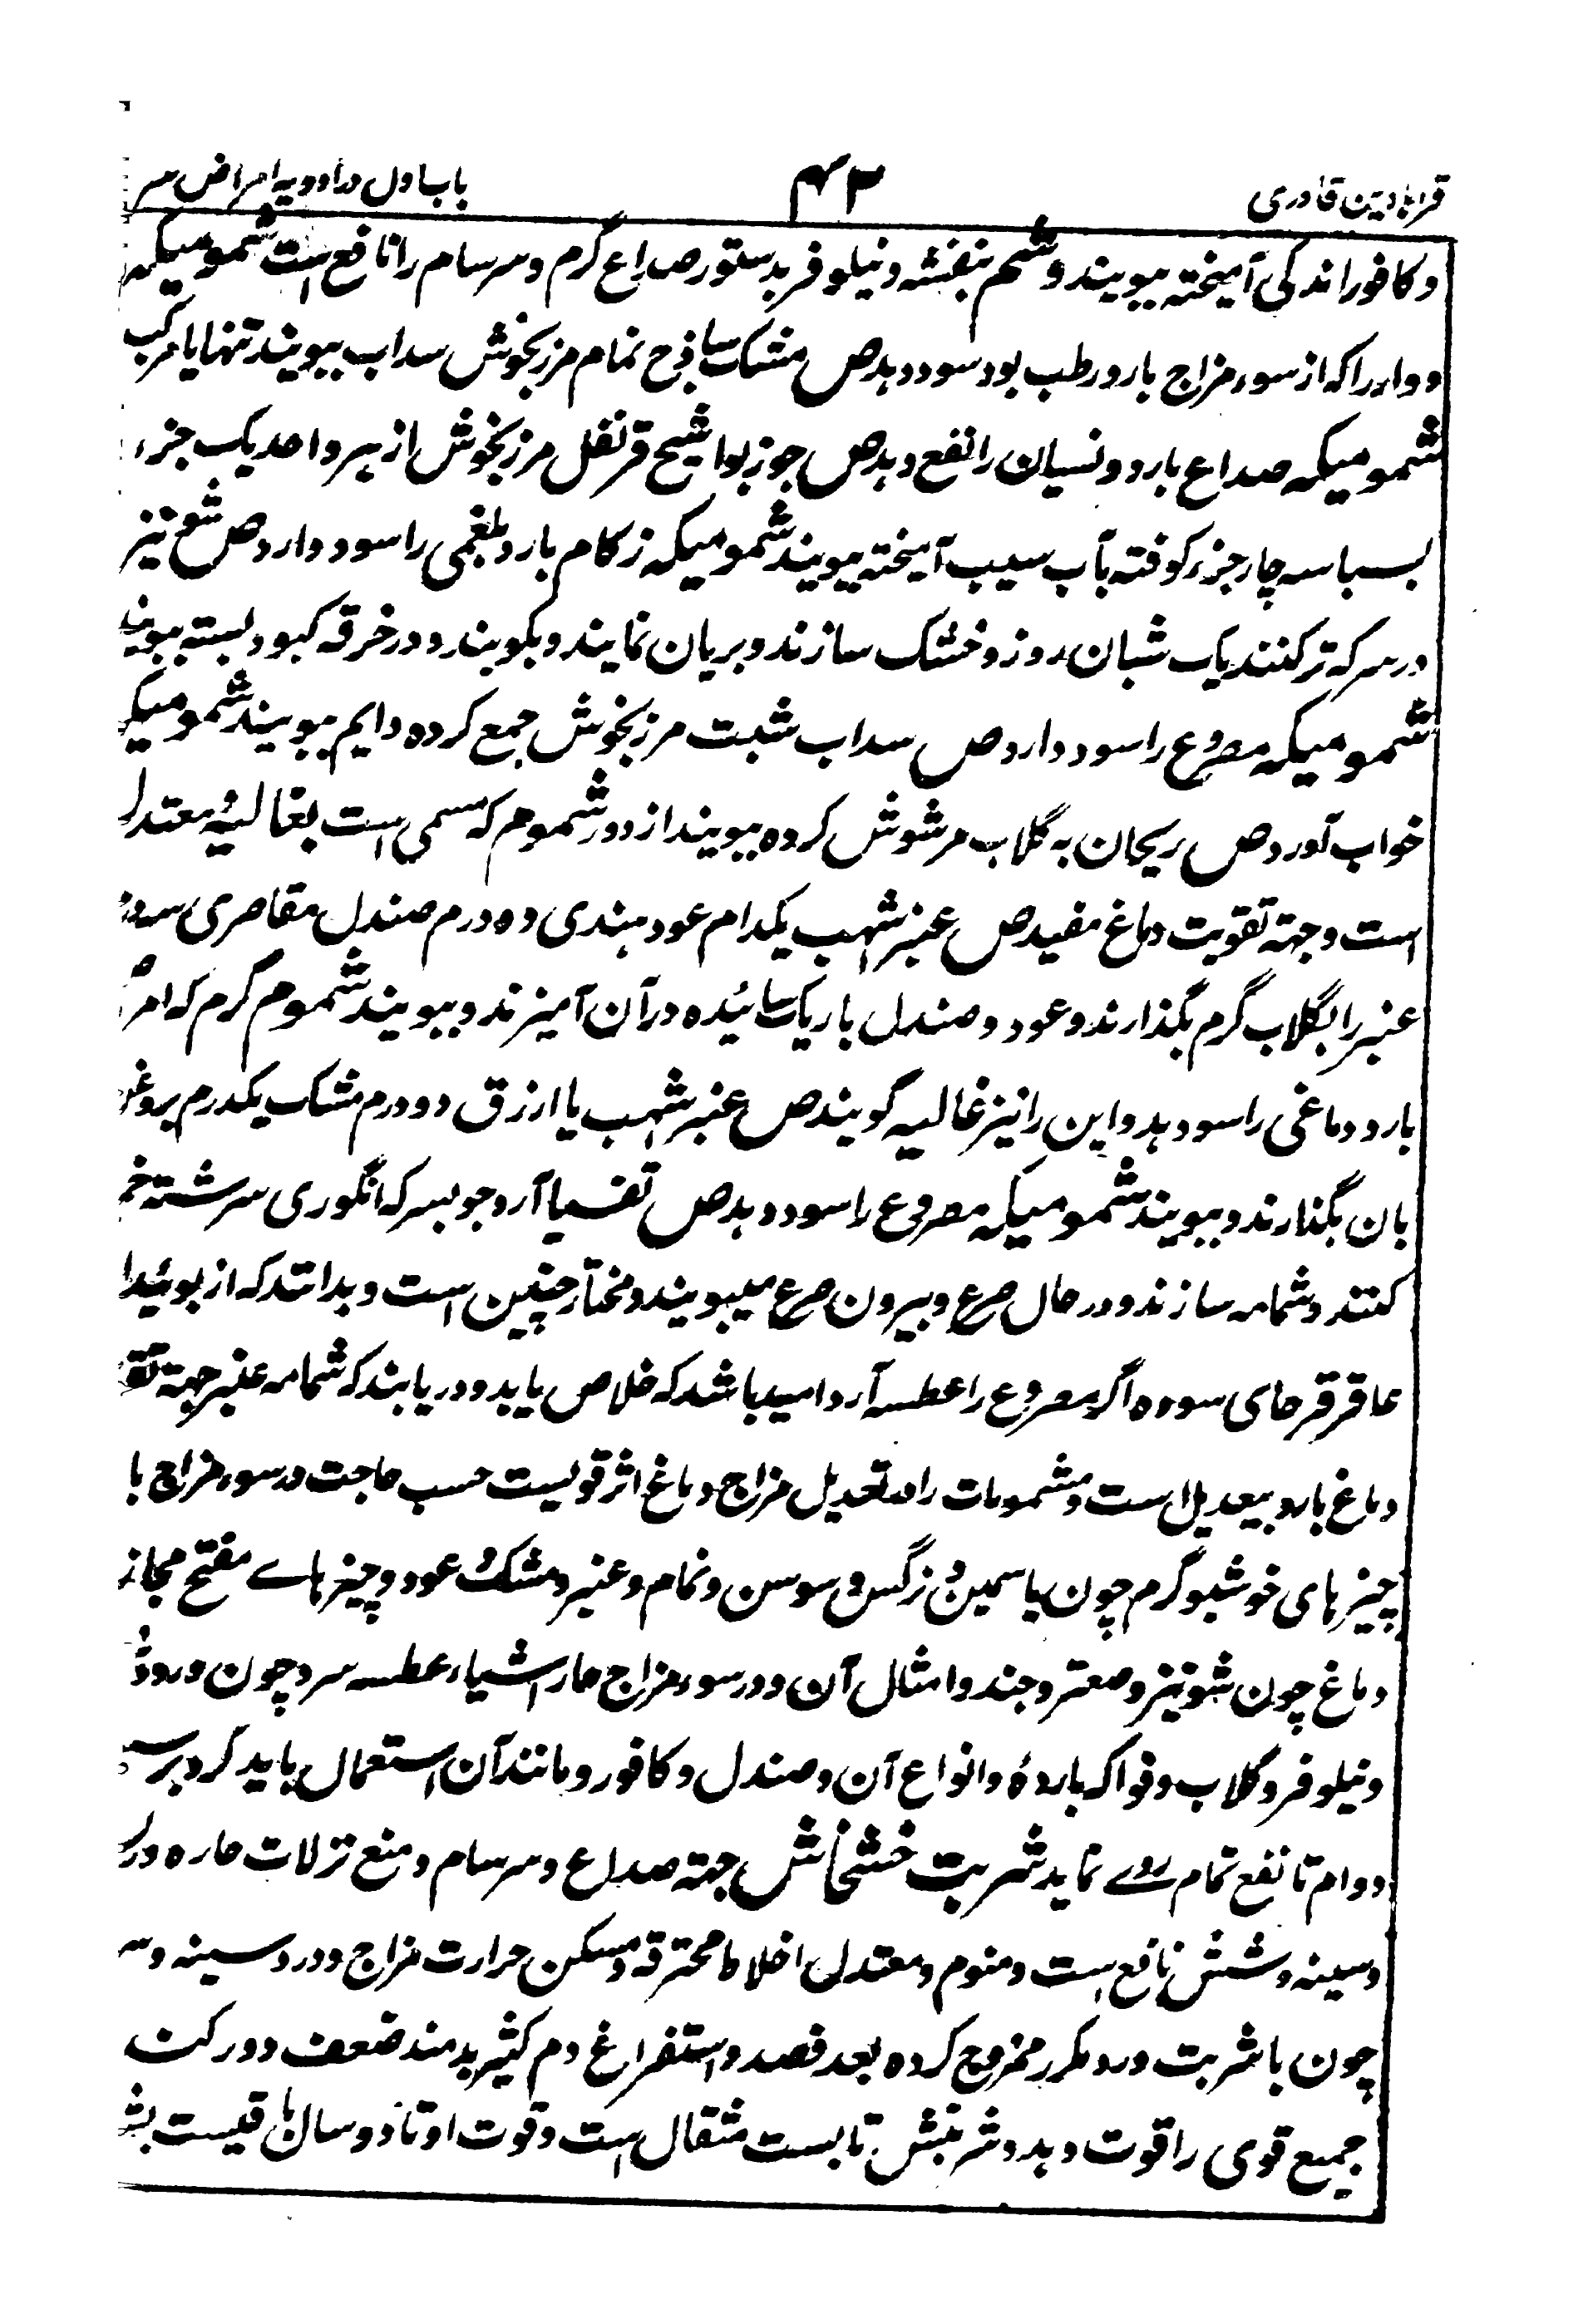 قرابادین قادری ۳۴ باب اول در ادویه امراض سر
و کافور اندکی آمیخته ببویند و شم بنفشه و نیلوفر بدستور صداع گرم و سرسام را نافع است شمومیکه
دوار را که از سوء مزاج بارد رطب بود سود دهد ص مشک ساذج نمام مرزنجوش سداب ببویند تنها یا مرکب
شمومیکه صداع بارد و نسیان را نفع دهد ص جوزبوا شیح قرنفل مرزنجوش از هر واحد یک جزء
بسباسه چار جزء کوفته بآب سیب آمیخته ببویند شمومیکه زکام بارد بلغمی را سود دارد ص شونیز
در سرکه تر کنند یک شبان روز و خشک سازند و بریان نمایند و بکوبند و در خرقه کبود بسته ببویند
شمومیکه مصروع را سود دارد ص سداب شبت مرزنجوش جمع کرده دایم ببویند شمومیکه
خواب آورد ص ریحان به گلاب مرشوش کرده ببویند از دور شموم که مسمی است بغالیهٔ معتدل
است وجهة تقویت دماغ مفید ص عنبر اشهب یکدام عود هندی ده درم صندل مقاصری سه
عنبر را بگلاب گرم بگذارند و عود و صندل باریک سائیده در آن آمیزند و ببویند شموم گرم که
بارد دماغی را سود دهد و این را نیز غالیه گویند ص عنبر اشهب یا ارزق دو درم مشک یکدرم بروغن
بان بگذارند و ببویند شمومیکه مصروع را سود دهد ص تفسیا آرد جو بسرکه انگوری سرشته
کنند و شمامه سازند و در حال صرع و بیرون صرع میبویند و مختار چنین است و بدانند که از بوئیدن
عاقرقرحای سوده اگر مصروع را عطسه آرد امید باشد که خلاص یابد و دریابند که شمامه عنبر جهة
دماغ بارد بیعدیل است و مشمومات را در تعدیل مزاج دماغ اثر قویست حسب حاجت در سوء مزاج با
چیزهای خوشبو گرم چون یاسمین و نرگس و سوسن و نمام و عنبر و مشک و عود و چیزهاے مفتح مجاز
دماغ چون شونیز و صعتر و جند و امثال آن و در سوء مزاج حار اشیاء عطسه سرد چون ورد و
و نیلوفر و گلاب و فواکه بارده و انواع آن و صندل و کافور و مانند آن استعمال باید کرد بر
دوام تا نفع تمام روے نماید شربت خشخاش جهة صداع و سرسام و منع نزلات حاره
و سینه و شش نافع است و منوم و معتدل اخلاط محترقه و مسکن حرارت مزاج و درد سینه و
چون با شربت ورد مکرر ممزوج کرده بعد فصد و استفراغ دم کثیر بدهند ضعف دور کند
جمیع قوی را قوت دهد و شربتش تا بست مثقال است و قوت او تا دو سال باقیست